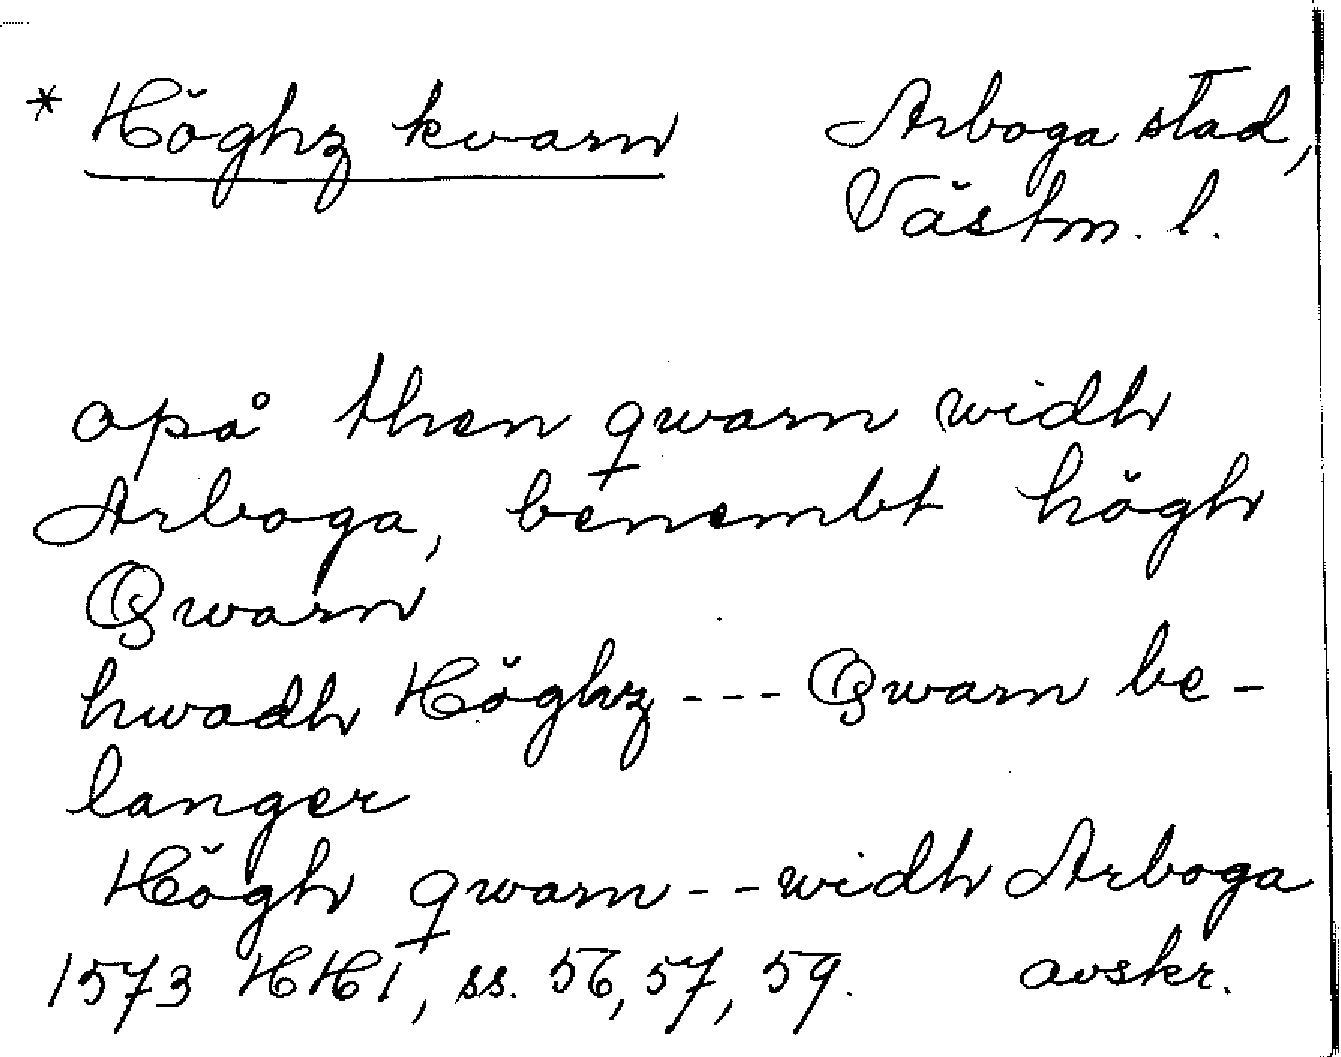 * Höghz kvarn Arboga stad,
Västm. l.
opå then qwarn widh
Arboga, benembt högh
Qwarn
hwadh Höghz --- Qwarn be-
langer
Högh qwarn -- widh Arboga
1573 HH1, ss. 56, 57, 59. avskr.